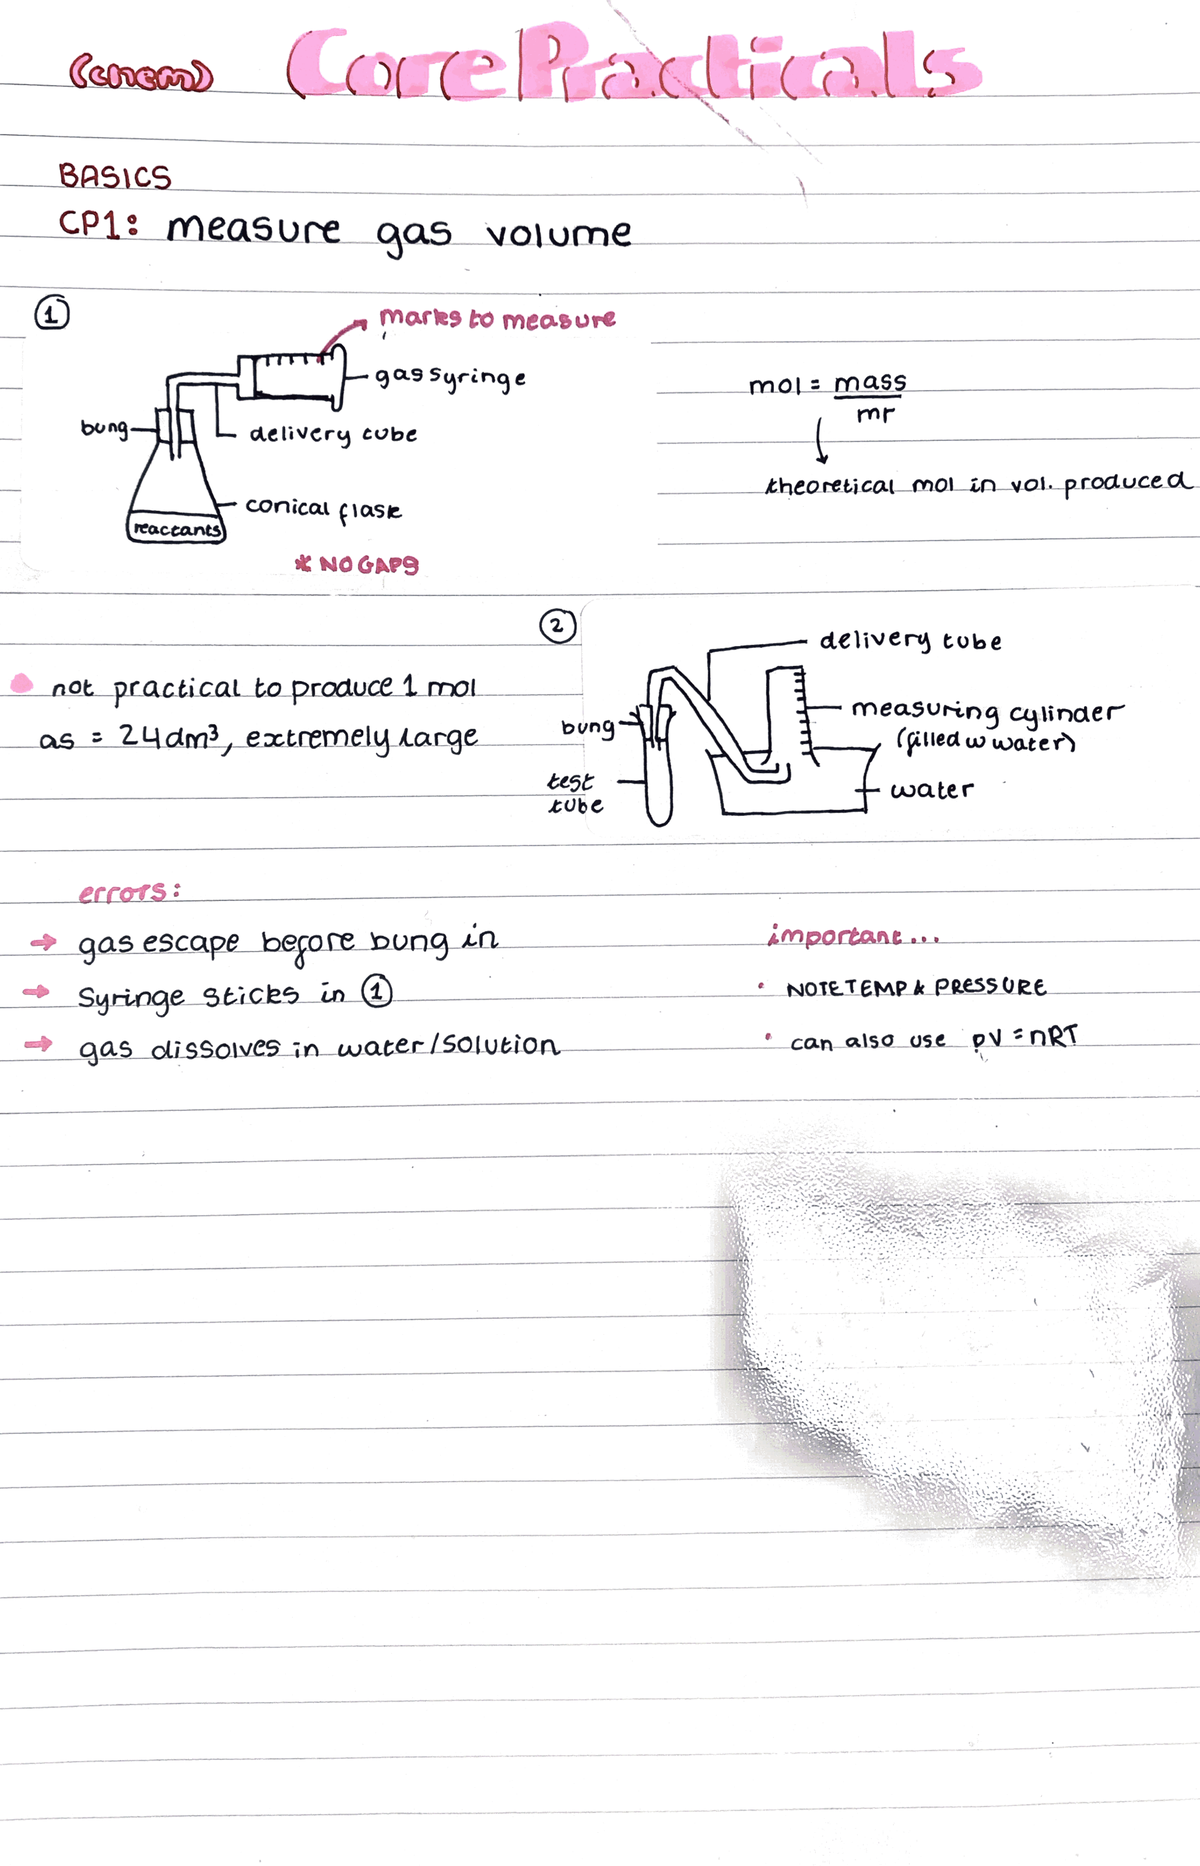 (chem) Core Practicals
BASICS
CP1: measure gas volume
1
marks to measure
gas syringe
bung
delivery tube
conical flask
reactants
* NO GAPS
mol = mass
mr
theoretical mol in vol. produced
2
delivery tube
not practical to produce 1 mol
as = 24dm³, extremely large
bung
measuring cylinder
(filled w water)
test
tube
water
errors:
→ gas escape before bung in
→ syringe sticks in ①
→ gas dissolves in water/solution
important...
• NOTE TEMP & PRESSURE
• can also use pV = nRT